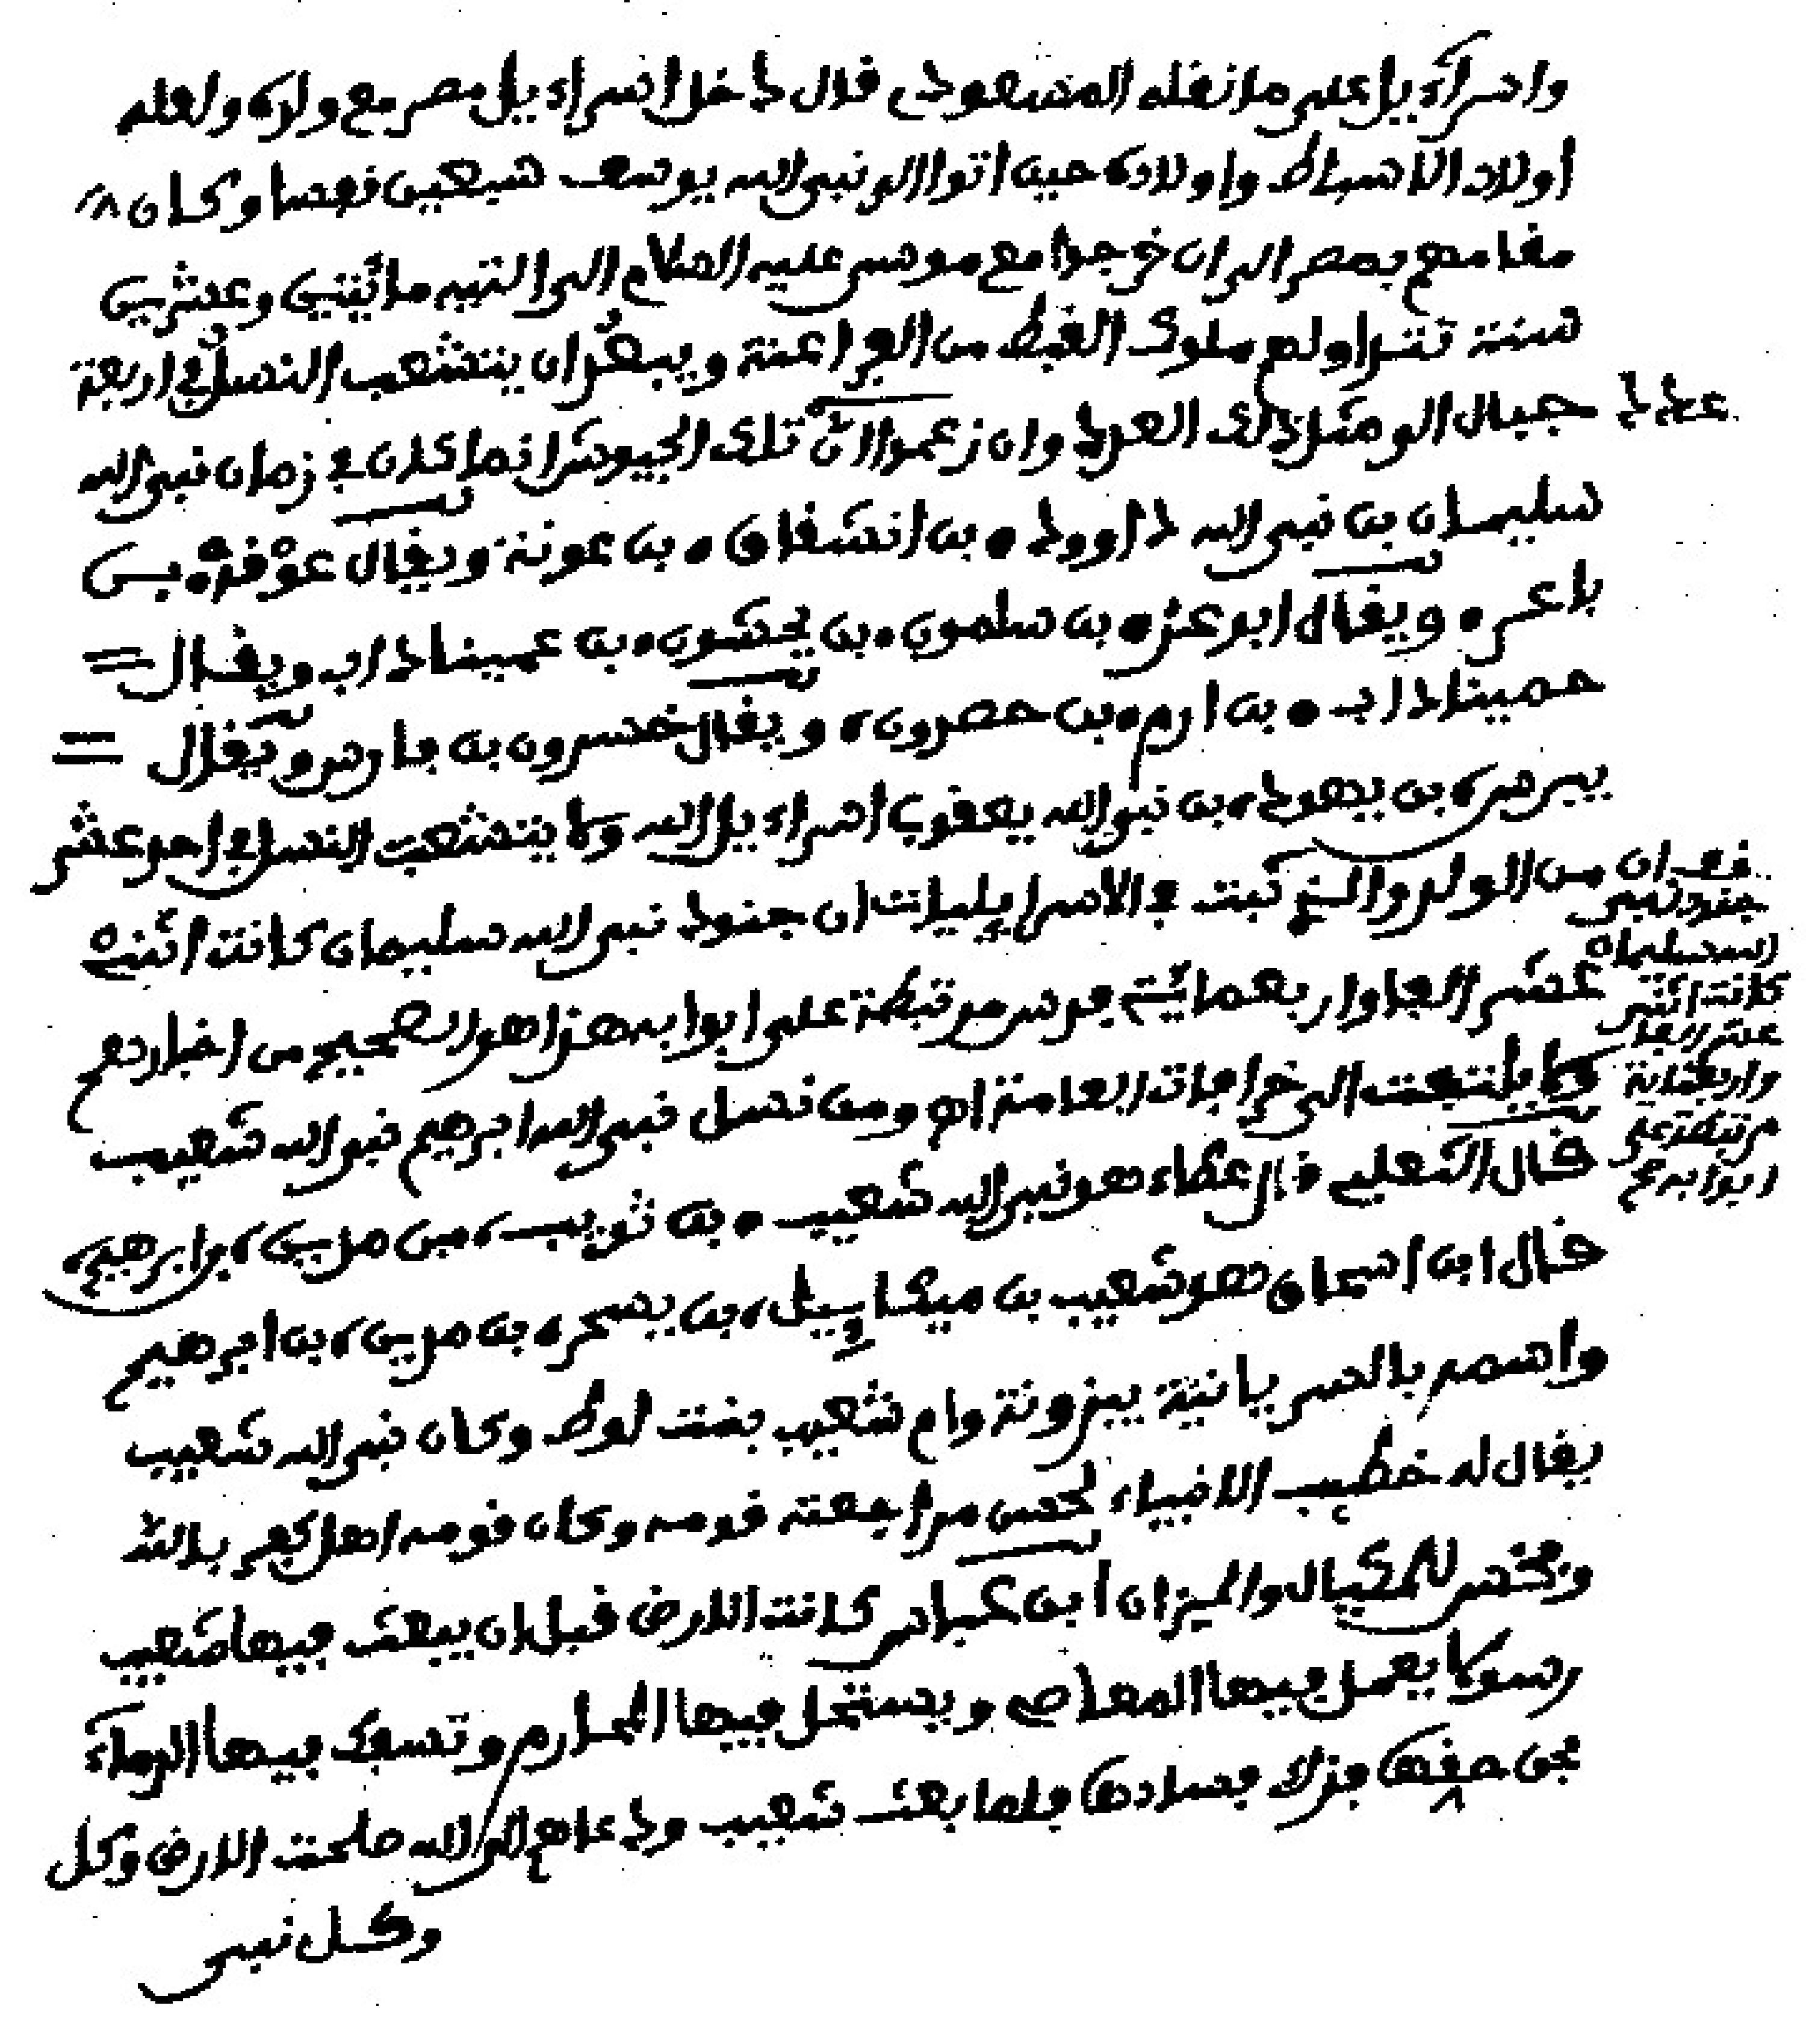 واسرآءيل على ما نقله المسعودي قال دخل اسراءيل مصر مع ولده ولعله
اولاد الاسباط واولاده حين اتوا الى نبي الله يوسف سبعين نفسا وكان
مقامهم بمصر الى ان خرجوا مع موسى عليه السلام الى التيه مائتين وعشرين
سنة تتداولهم ملوك القبط من الفراعنة ويبعد ان يتشعب النسل في اربعة
اجيال الى مثل ذلك العدد وان زعموا ان تلك الجيوش انما كان في زمان نبي الله
عدد
سليمان بن نبي الله داوود بن انشفاق بن عونة ويقال عوفذ بن
باعر ويقال ابوعز بن سلمون بن يحشون بن عميناداب ويقال
حميناداب بن ارم بن حصرون ويقال خسرون بن بارس ويقال
بيرص بن يهود بن نبي الله يعقوب اسراءيل الله ولا يتشعب النسل في احد عشر
من الولد والذي ثبت في الاسراءيليات ان جنود نبي الله سليمان كانت اثني
عشر الفا واربعمائة فرس مرتبطة على ابوابه هذا هو الصحيح من اخبارهم
ولا يلتفت الى خرافات العامة اه ومن نسل نبي الله ابرهيم نبي الله شعيب
قال الثعلبي قال عطاء هو نبي الله شعيب بن ثويب بن مدين بن ابرهيم
قال ابن اسحاق هو شعيب بن ميكاييل بن يسحر بن مدين بن ابرهيم
واسمه بالسريانية يبزونة وام شعيب بنت لوط وكان نبي الله شعيب
يقال له خطيب الانبياء لحسن مراجعته قومه وكان قومه اهل كفر بالله
وبخس للمكيال والميزان ابن عباس كانت الارض قبل ان يبعث فيها شعيب
رسولا يعمل فيها المعاصي ويستحل فيها المحارم وتسفك فيها الدماء
فذلك فسادها فلما بعث شعيب ودعاهم الى الله صلحت الارض وكل
وكل نبي
جنود نبي
الله سليمان
كانت اثني
عشر الفا
واربعماية
مرتبطة على
ابوابه